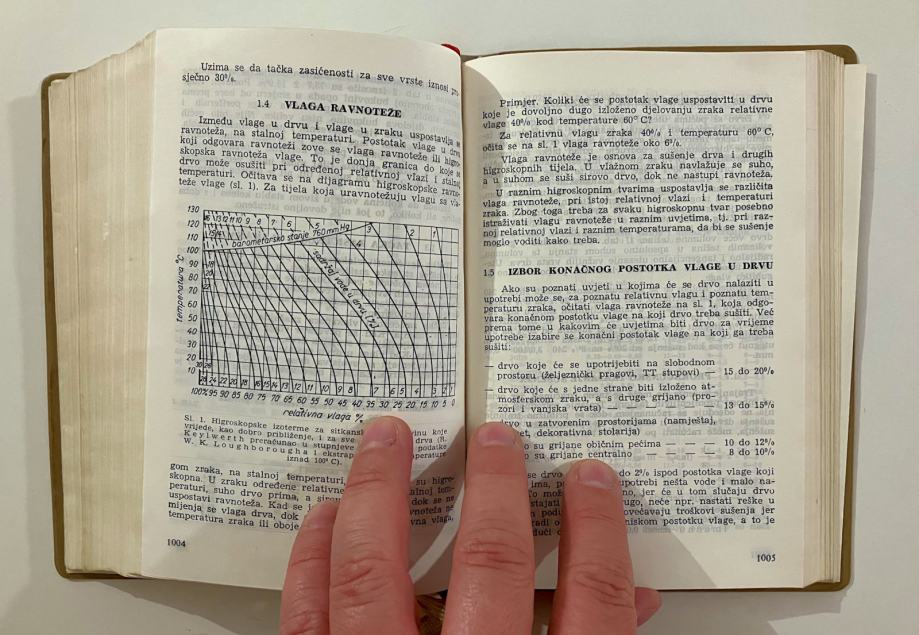 Uzima se da tačka zasićenosti za sve vrste iznosi pro-
sječno 30%.
1.4 VLAGA RAVNOTEŽE
Između vlage u drvu i vlage u zraku uspostavlja se
ravnoteža, na stalnoj temperaturi. Postotak vlage u drvu
koji odgovara ravnoteži zove se vlaga ravnoteže ili higro-
skopska ravnoteža vlage. To je donja granica do koje se
drvo može osušiti pri određenoj relativnoj vlazi i stalnoj
temperaturi. Očitava se na dijagramu higroskopske ravno-
teže vlage (sl. 1). Za tijela koja uravnotežuju vlagu sa vla-
130
120
110
100
90
80
70
60
50
40
30
20
10
temperatura °C
barometarsko stanje 760 mm Hg
sadržaj vode u drvu [%]
100% 95 90 85 80 75 70 65 60 55 50 45 40 35 30 25 20 15 10 5 0
relativna vlaga %
Sl. 1. Higroskopske izoterme za sitkansku
vrijede, kao dobro približenje, i za sve drva (R.
Keylwerth preračunao u stupnjeve podatke
W. K. Loughborougha i ekstrap
iznad 100° C).
gom zraka, na stalnoj temperaturi, su higro-
skopna. U zraku određene relativne
peraturi, suho drvo prima, a sirovo
uspostavi ravnoteža. Kad se
mijenja se vlaga drva, dok
temperatura zraka ili oboje
1004
Primjer. Koliki će se postotak vlage uspostaviti u drvu
koje je dovoljno dugo izloženo djelovanju zraka relativne
vlage 40% kod temperature 60° C?
Za relativnu vlagu zraka 40% i temperaturu 60° C,
očita se na sl. 1 vlaga ravnoteže oko 6%.
Vlaga ravnoteže je osnova za sušenje drva i drugih
higroskopnih tijela. U vlažnom zraku navlažuje se suho,
a u suhom se suši sirovo drvo, dok ne nastupi ravnoteža.
U raznim higroskopnim tvarima uspostavlja se različita
vlaga ravnoteže, pri istoj relativnoj vlazi i temperaturi
zraka. Zbog toga treba za svaku higroskopnu tvar posebno
istraživati vlagu ravnoteže u raznim uvjetima, tj. pri raz-
noj relativnoj vlazi i raznim temperaturama, da bi se sušenje
moglo voditi kako treba.
1.5 IZBOR KONAČNOG POSTOTKA VLAGE U DRVU
Ako su poznati uvjeti u kojima će se drvo nalaziti u
upotrebi može se, za poznatu relativnu vlagu i poznatu tem-
peraturu zraka, očitati vlaga ravnoteže na sl. 1, koja odgo-
vara konačnom postotku vlage na koji drvo treba sušiti. Već
prema tome u kakovim će uvjetima biti drvo za vrijeme
upotrebe izabire se konačni postotak vlage na koji ga treba
sušiti:
— drvo koje će se upotrijebiti na slobodnom
prostoru (željeznički pragovi, TT stupovi) — 15 do 20%
— drvo koje će s jedne strane biti izloženo at-
mosferskom zraku, a s druge grijano (pro-
zori i vanjska vrata) — — — — — — 13 do 15%
drvo u zatvorenim prostorijama (namještaj,
dekorativna stolarija)
su grijane običnim pećima — — — 10 do 12%
su grijane centralno — — — — 8 do 10%
se drvo do 2% ispod postotka vlage koji
upotrebi nešta vode i malo na-
jer će u tom slučaju drvo
neće npr. nastati reške u
povećavaju troškovi sušenja jer
niskom postotku vlage, a to je
1005